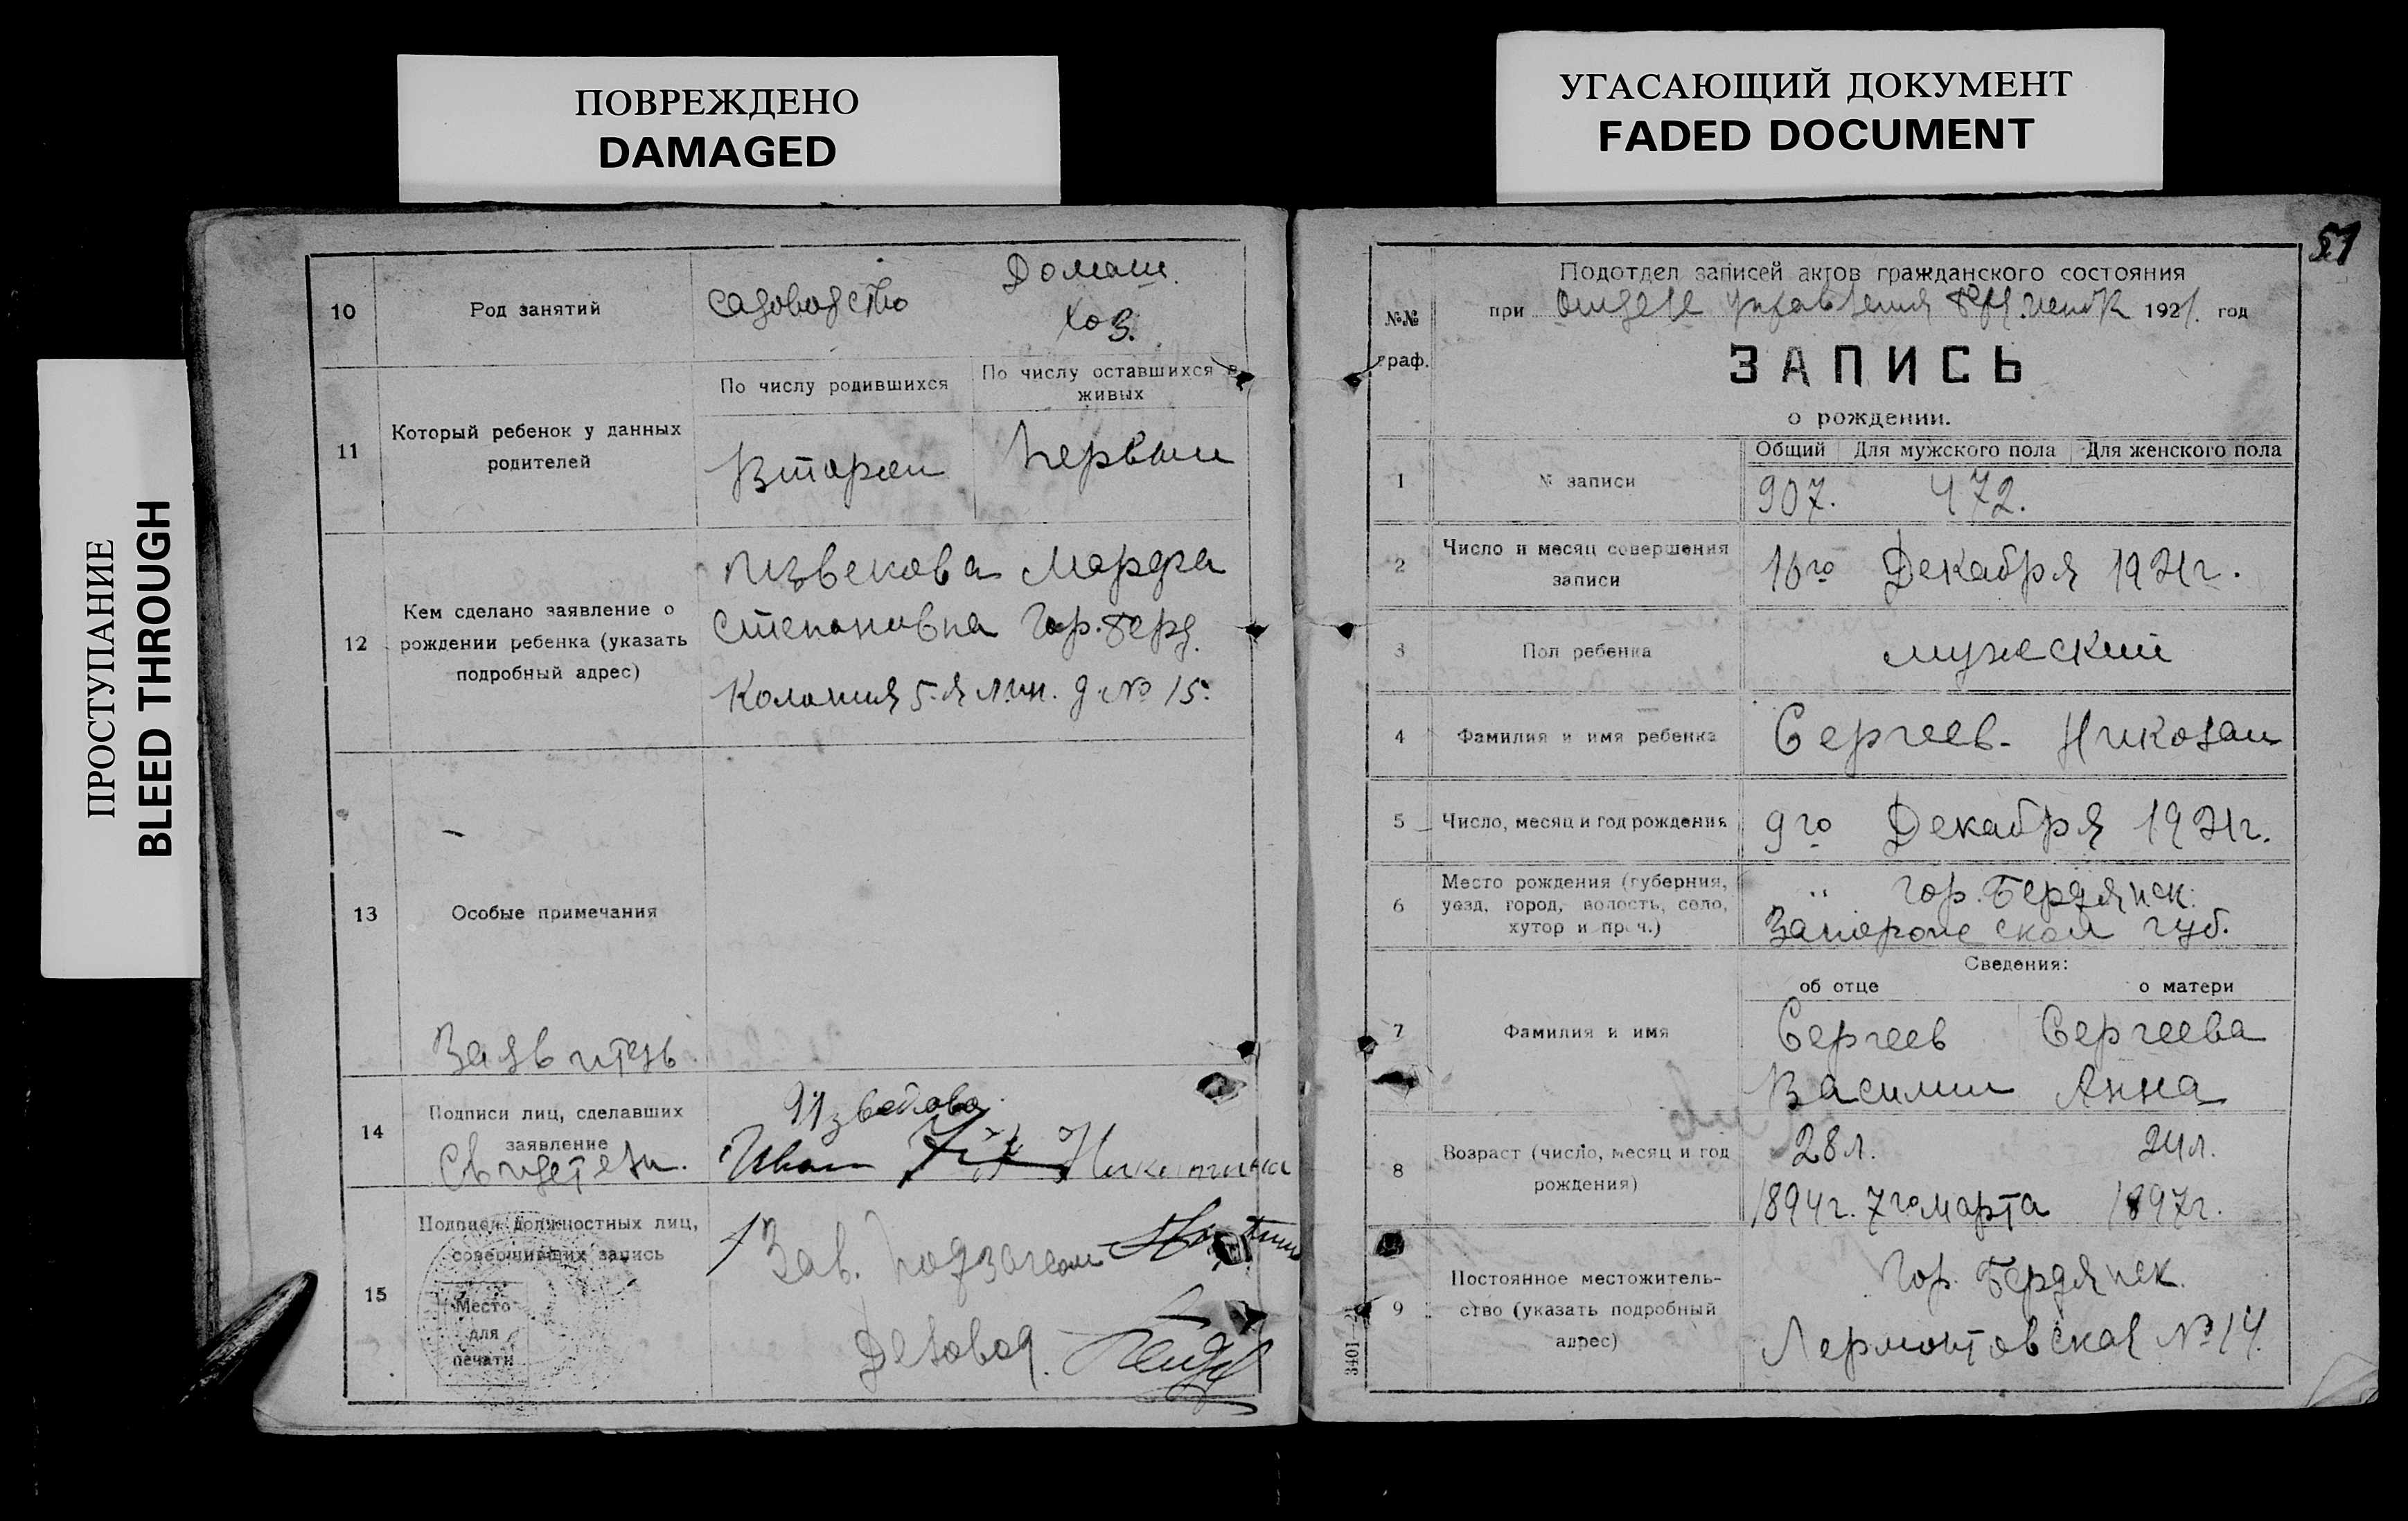 ПОВРЕЖДЕНО
DAMAGED
УГАСАЮЩИЙ ДОКУМЕНТ
FADED DOCUMENT
ПРОСТУПАНИЕ
BLEED THROUGH
10 Род занятий садоводство Домашн. хоз.
11 Который ребенок у данных родителей
По числу родившихся По числу оставшихся в живых
Вторый Первый
12 Кем сделано заявление о рождении ребенка (указать подробный адрес)
Извекова Марфа
Степановна Гор. Берд.
Колония 5-я лин. д № 15.
13 Особые примечания
Заявитель
14 Подписи лиц, сделавших
заявление
Свидетели.
Иван Никитина
15 Подписи должностных лиц,
совершивших запись
Место
для
печати
Зав. Подзагсом
Деловод.
51
№№
граф.
Подотдел записей актов гражданского состояния
при Отделе Управления 1921. год
ЗАПИСЬ
о рождении.
Общий Для мужского пола Для женского пола
1 № записи 907. 472.
2 Число и месяц совершения
записи
16го Декабря 1921г.
3 Пол ребенка мужеский
4 Фамилия и имя ребенка Сергеев- Николай
5 Число, месяц и год рождения 9го Декабря 1921г.
6 Место рождения (губерния,
уезд, город, волость, село,
хутор и проч.)
" Гор. Бердянск.
Запорожской губ.
Сведения:
об отце о матери
7 Фамилия и имя
Сергеев Сергеева
Василий Анна
8 Возраст (число, месяц и год
рождения)
28л. 24л.
1894г. 7го марта 1897г.
9 Постоянное местожитель-
ство (указать подробный
адрес)
Гор. Бердянск.
Лермонтовская № 14.
3401—21